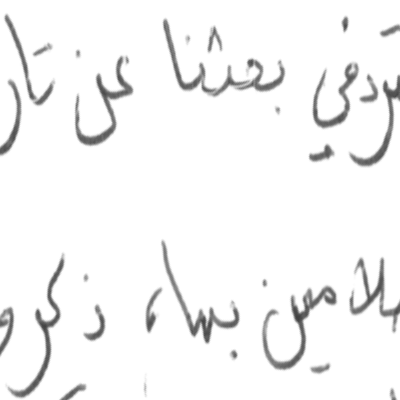 في بحثنا عن تار
لامين بها، ذكرو